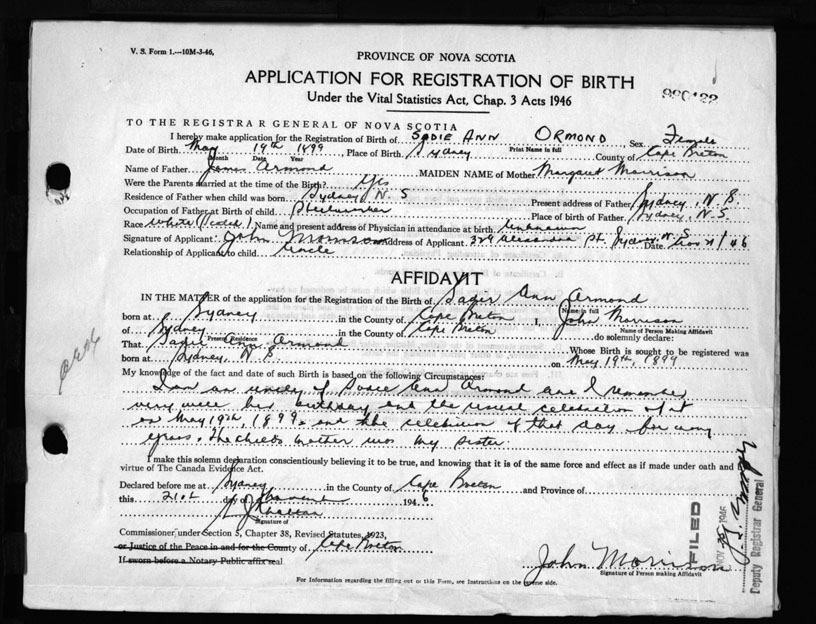 V. S. Form 1.—10M-3-46.
PROVINCE OF NOVA SCOTIA
APPLICATION FOR REGISTRATION OF BIRTH
Under the Vital Statistics Act, Chap. 3 Acts 1946
TO THE REGISTRAR GENERAL OF NOVA SCOTIA
I hereby make application for the Registration of Birth of SADIE ANN ORMOND Sex Female
Print Name in full
Date of Birth May 19th 1899, Place of Birth Sydney County of Cape Breton
Month Date Year
Name of Father James Armond MAIDEN NAME of Mother Margaret Morrison
Were the Parents married at the time of the Birth? Yes
Residence of Father when child was born Sydney N S Present address of Father Sydney, N. S.
Occupation of Father at Birth of child Steelworker Place of birth of Father Sydney, N.S.
Race White Name and present address of Physician in attendance at birth Unknown
Signature of Applicant John Morrison Address of Applicant St, Sydney, N. S. Date Nov 21/46
Relationship of Applicant to child Uncle
AFFIDAVIT
IN THE MATTER of the application for the Registration of the Birth of Sadie Ann Armond
Name in full
born at Sydney in the County of Cape Breton I, John Morrison
Name of Person Making Affidavit
of Sydney in the County of Cape Breton do solemnly declare:
Present Residence
That Sadie Ann Armond Whose Birth is sought to be registered was
born at Sydney, N. S. on May 19th, 1899
My knowledge of the fact and date of such Birth is based on the following Circumstances:
I am an uncle of Sadie Ann Armond and I remember
very well her birthday and the usual celebration of it
on May 19th, 1899, and the celebration of that day for many
years. The child's mother was my sister.
I make this solemn declaration conscientiously believing it to be true, and knowing that it is of the same force and effect as if made under oath and by
virtue of The Canada Evidence Act.
Declared before me at Sydney in the County of Cape Breton and Province of
this 21st day of November 1946
Signature of
Commissioner under Section 5, Chapter 38, Revised Statutes, 1923,
or Justice of the Peace in and for the County of Cape Breton
If sworn before a Notary Public affix seal
John Morrison
Signature of Person making Affidavit
For Information regarding the filling out of this Form, see Instructions on the reverse side.
FILED
NOV 1946
Deputy Registrar General